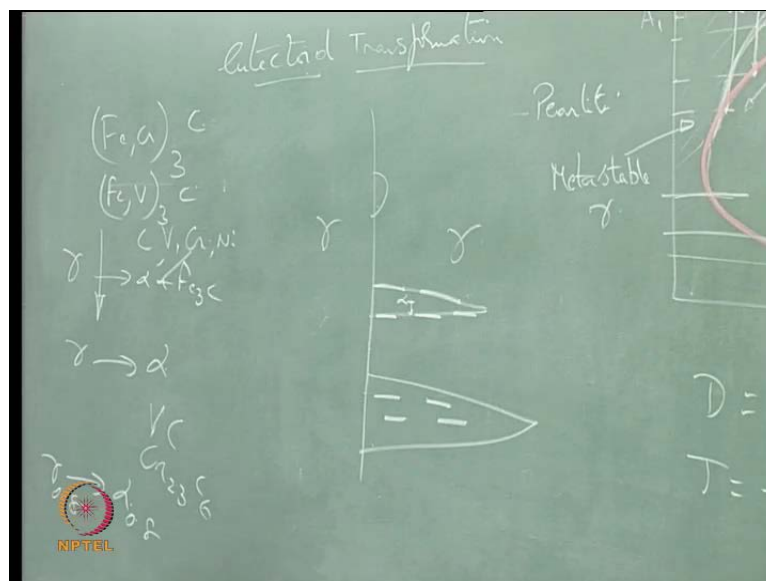 Eutectoid Transformation
(Fe, Cr)3 C
(Fe, V)3 C
C V, Cr, Ni
γ → α + Fe3C
γ → α
VC
Cr23 C6
γ → α
NPTEL
γ γ
α
Pearlite
Metastable
γ
A1
D =
T =